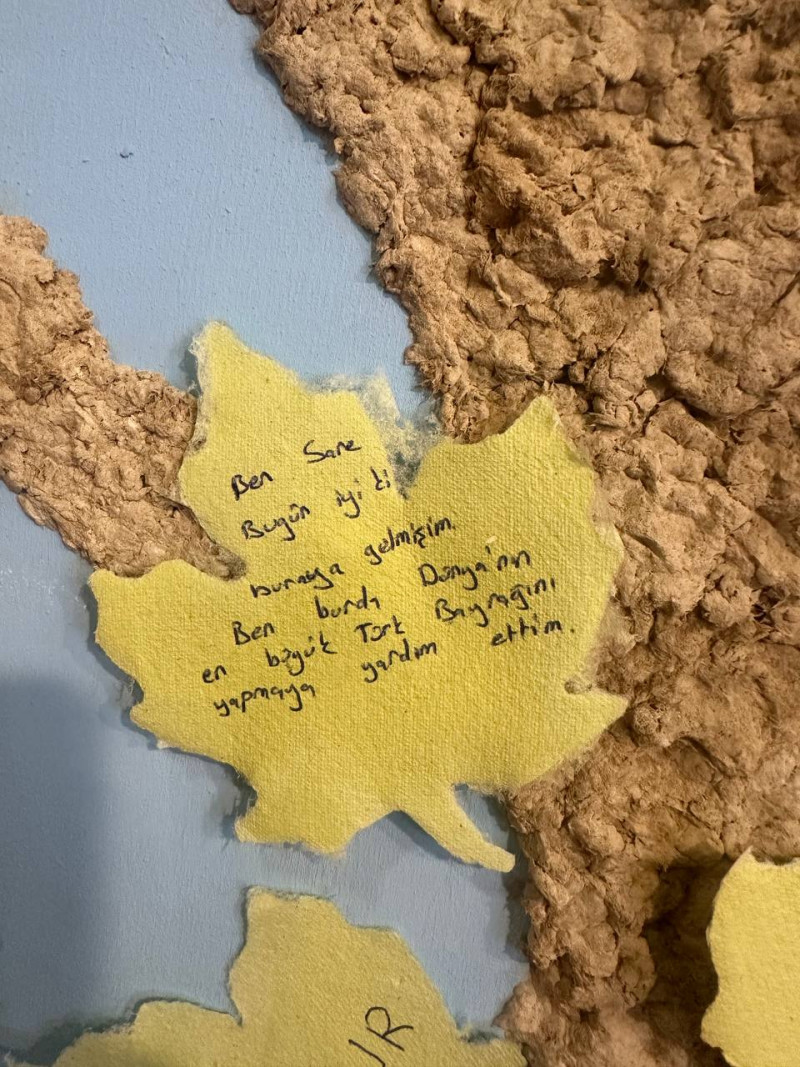 Ben Sare
Bugün iyi ki
buraya gelmişim.
Ben burda Dünya'nın
en büyük Türk Bayrağını
yapmaya yardım ettim.
UR